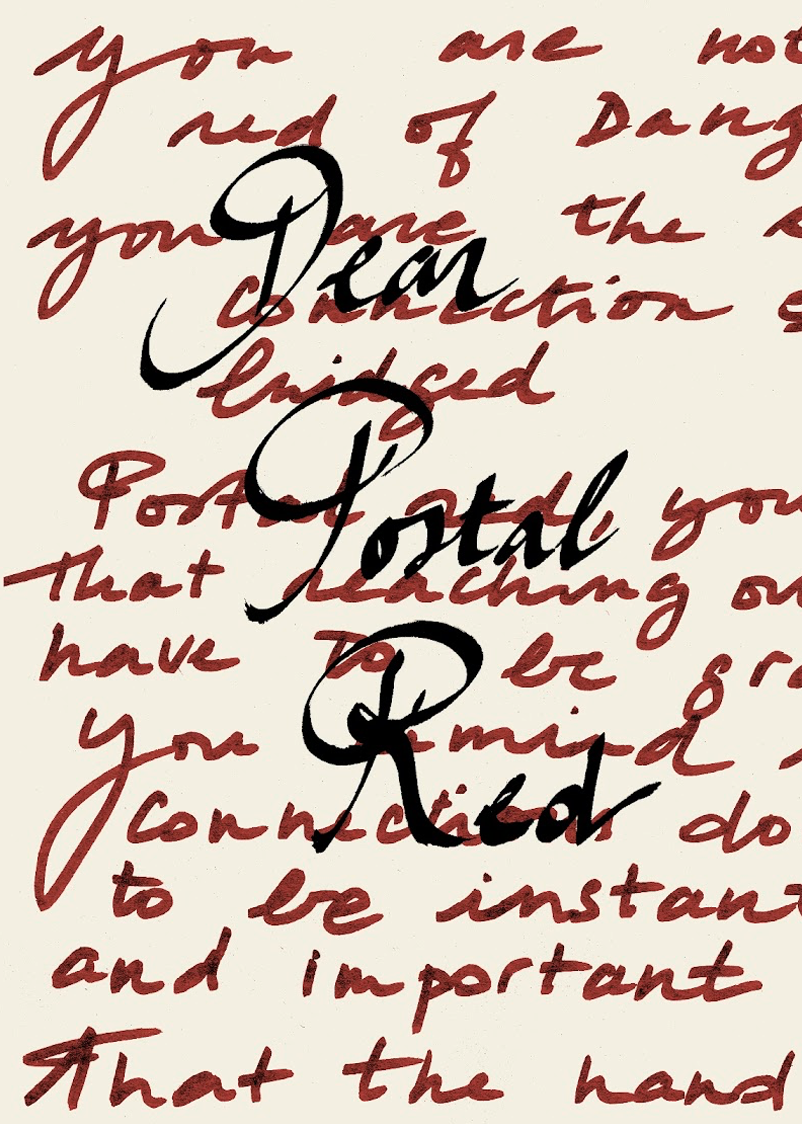 you are not
red of Dang
you are the s
connection
bridged
Postal Red, you
that reaching ou
have to be gra
you remind
connection do
to be instant
and important
That the hand
Dear
Postal
Red